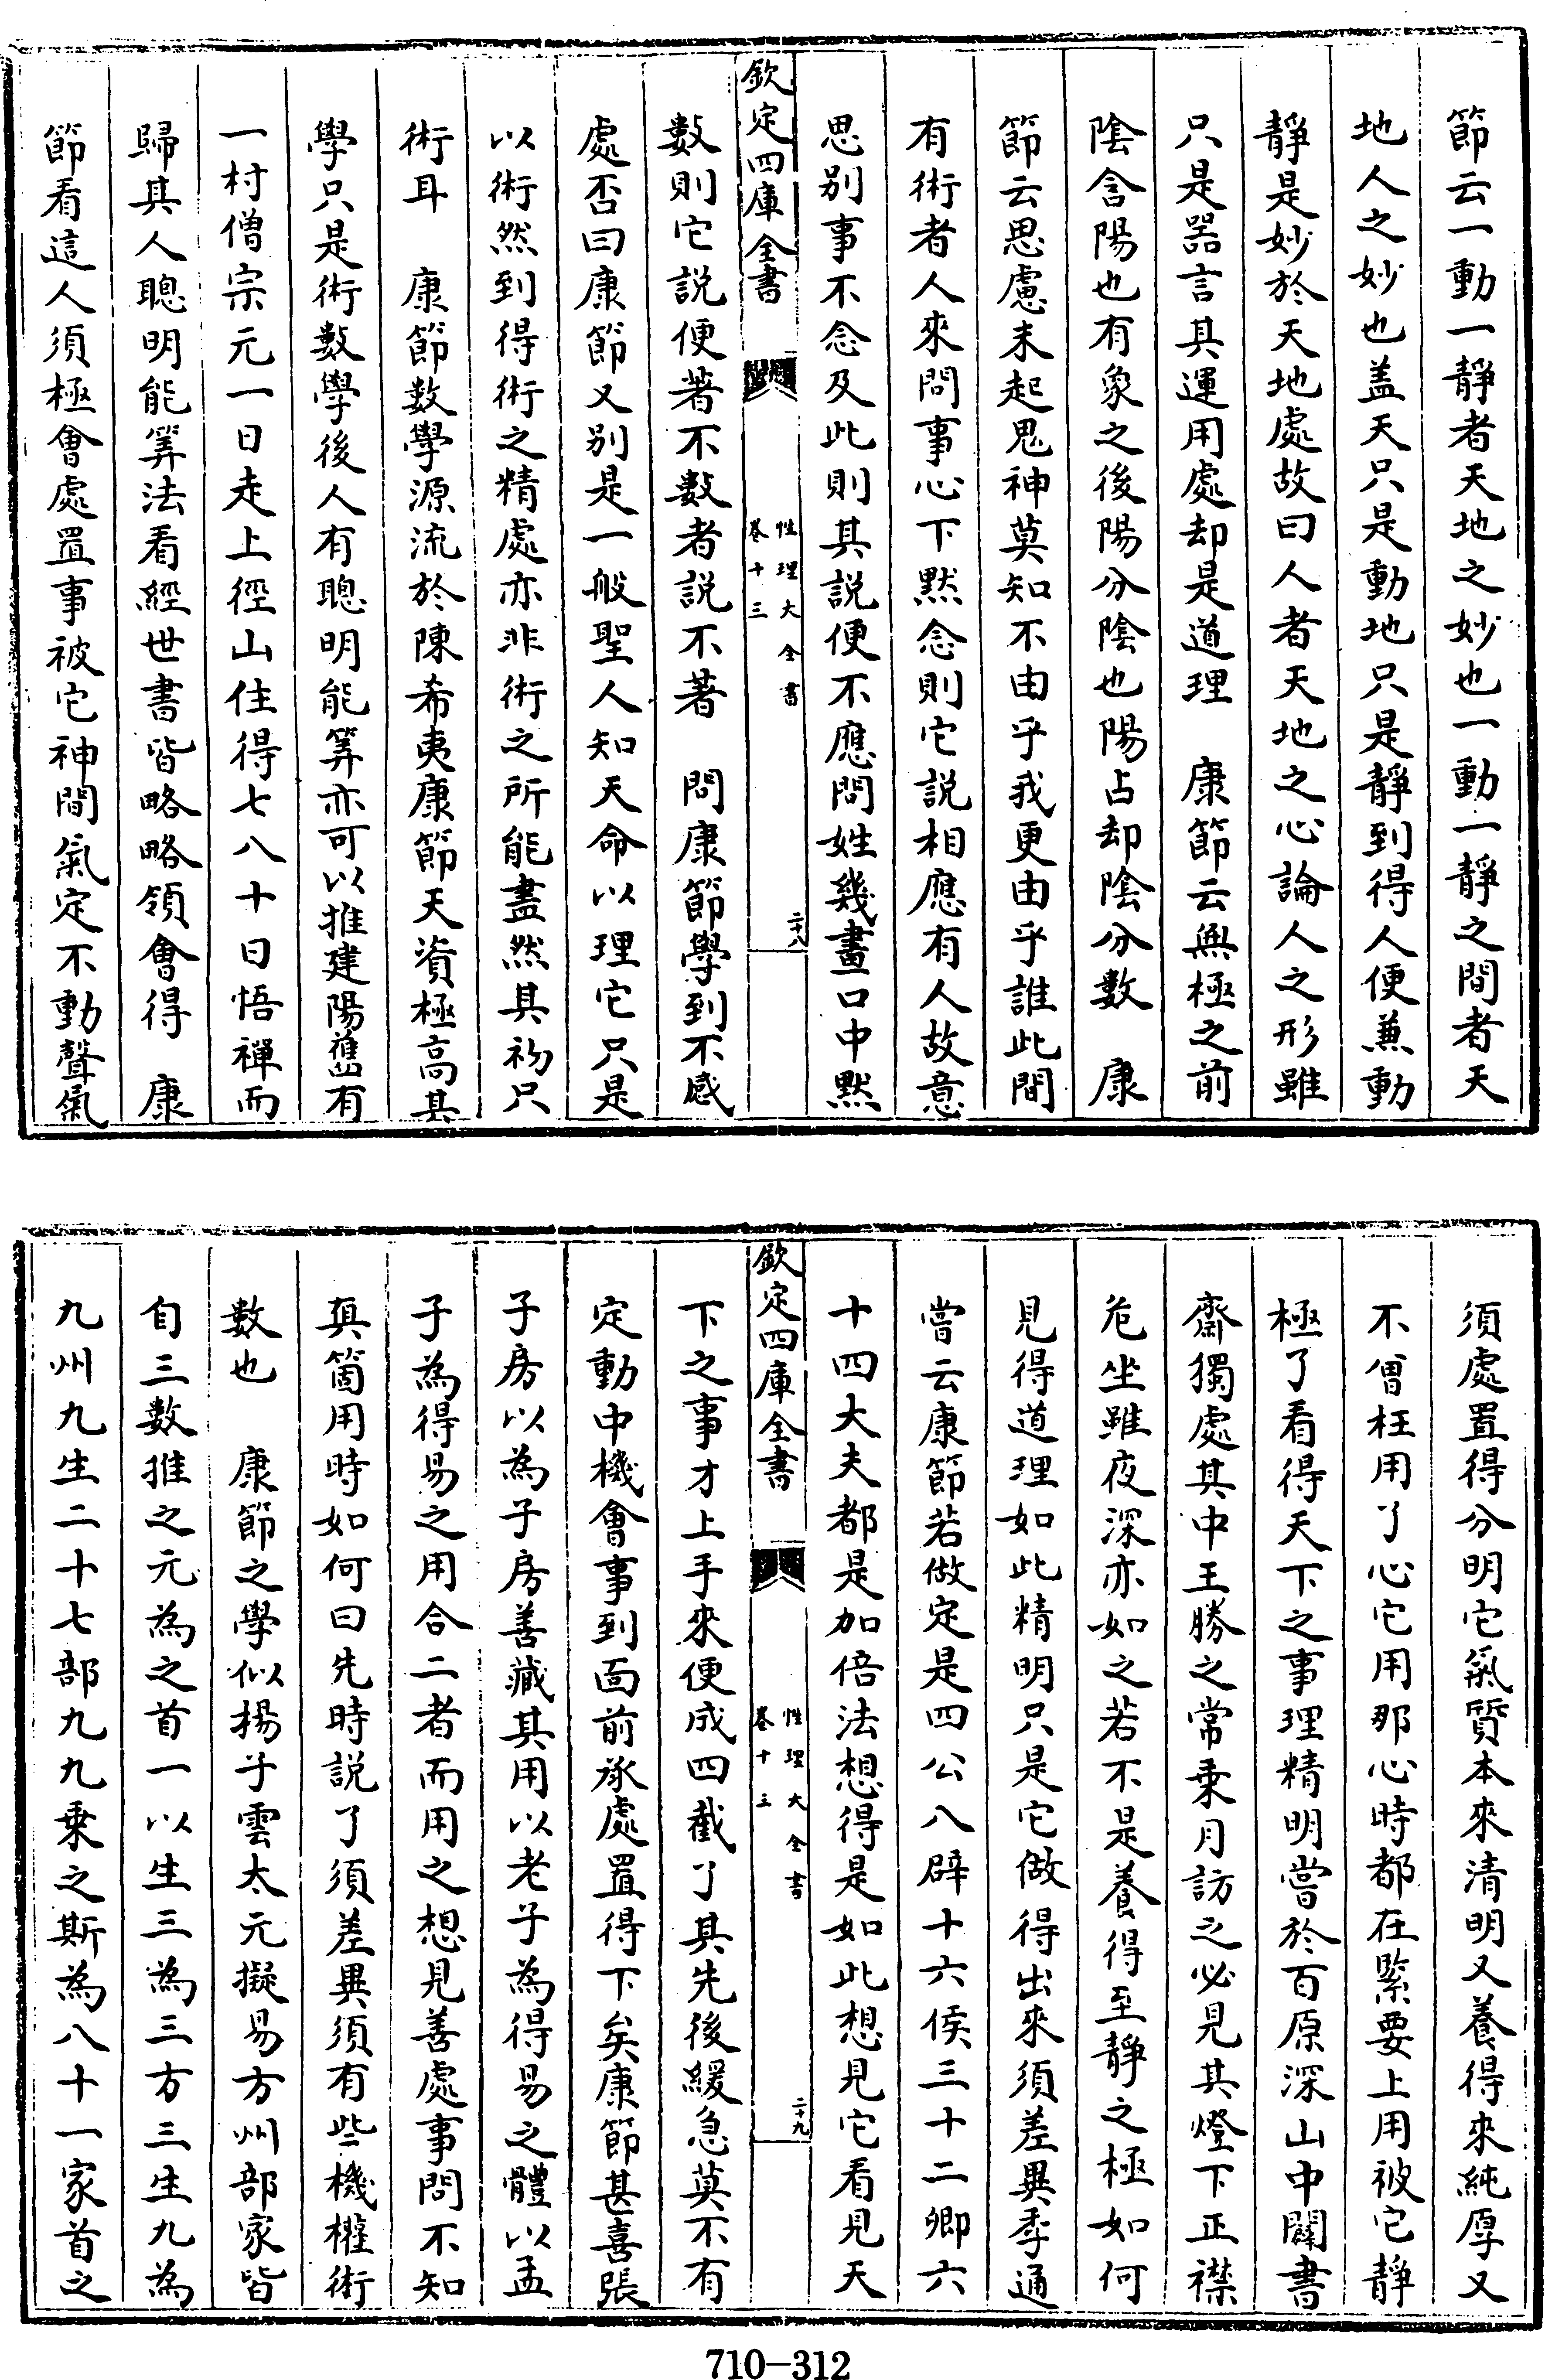 節云一動一靜者天地之妙也一動一靜之間者天
地人之妙也盖天只是動地只是靜到得人便兼動
靜是妙於天地處故曰人者天地之心論人之形雖
只是器言其運用處却是道理　康節云無極之前
陰含陽也有象之後陽分陰也陽占却陰分數　康
節云思慮未起鬼神莫知不由乎我更由乎誰此間
有術者人來問事心下黙念則它説相應有人故意
思别事不念及此則其説便不應問姓幾畫口中黙
欽定四庫全書
性理大全書
卷十三
二十八
數則它説便著不數者説不著　問康節學到不惑
處否曰康節又别是一般聖人知天命以理它只是
以術然到得術之精處亦非術之所能盡然其初只
術耳　康節數學源流於陳希夷康節天資極高其
學只是術數學後人有聰明能筭亦可以推建陽舊有
一村僧宗元一日走上徑山住得七八十日悟禪而
歸其人聰明能筭法看經世書皆略略領會得　康
節看這人須極會處置事被它神閒氣定不動聲氣
須處置得分明它氣質本來清明又養得來純厚又
不曾枉用了心它用那心時都在緊要上用被它靜
極了看得天下之事理精明嘗於百原深山中闢書
齋獨處其中王勝之常乗月訪之必見其燈下正襟
危坐雖夜深亦如之若不是養得至靜之極如何
見得道理如此精明只是它做得出來須差異季通
嘗云康節若做定是四公八辟十六侯三十二卿六
十四大夫都是加倍法想得是如此想見它看見天
欽定四庫全書
性理大全書
卷十三
二十九
下之事才上手來便成四截了其先後緩急莫不有
定動中機會事到面前承處置得下矣康節甚喜張
子房以為子房善藏其用以老子為得易之體以孟
子為得易之用合二者而用之想見善處事問不知
真箇用時如何曰先時説了須差異須有些機權術
數也　康節之學似揚子雲太元擬易方州部家皆
自三數推之元為之首一以生三為三方三生九為
九州九生二十七部九九乗之斯為八十一家首之
710-312